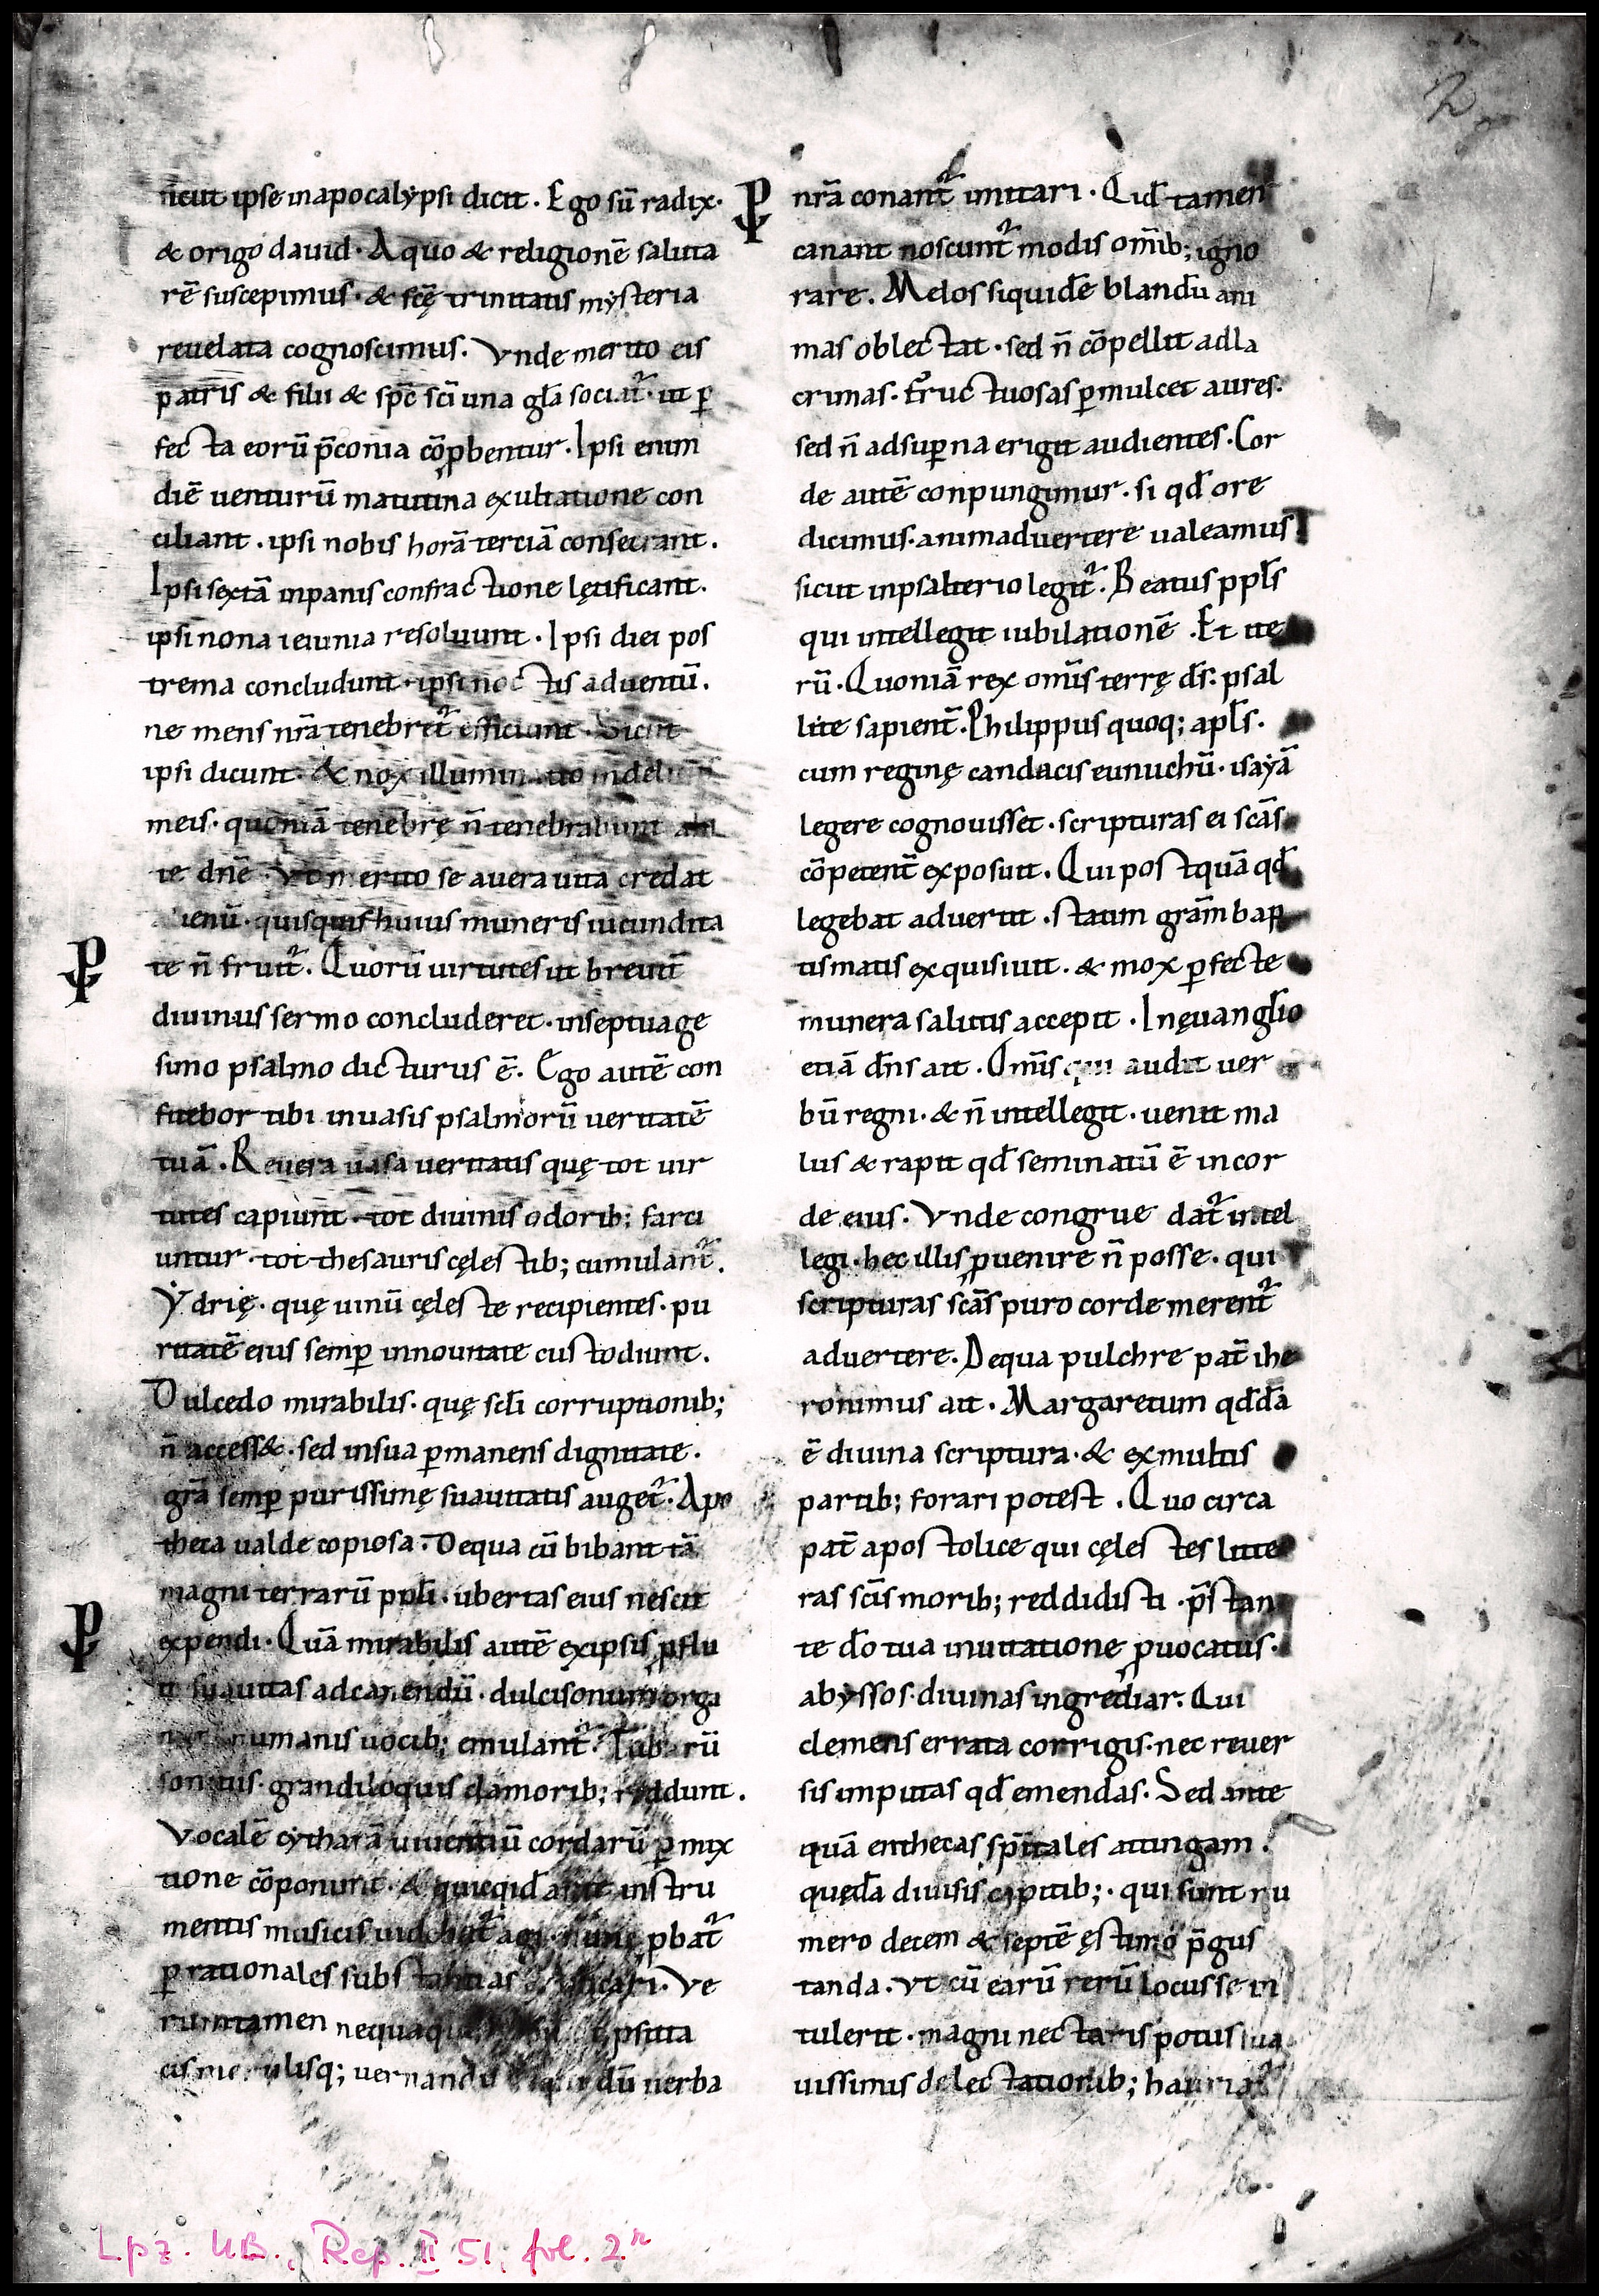 sicut ipse in apocalypsi dicit · Ego sū radix ·
& origo dauid · A quo & religionē saluta
rē suscepimus · & scę̄ trinitatis mysteria
reuelata cognoscimus. Vnde merito eis
patris & filii & sp̄c sc̄i una gl̄a sociat̄ · ut ꝑ
fecta eorū p̄conia cōꝓbentur · Ipsi enim
diē uenturū matutina exultatione con
ciliant · ipsi nobis horā terciā consecrant.
Ipsi sextā in panis confractione lętificant.
ipsi nona ieiunia resoluunt · Ipsi diei pos
trema concludunt · ipsi noctis aduentū.
ne mens nr̄a tenebret̄ efficiunt · Sicut
ipsi dicunt · & nox illuminatio in deliciis
meis · quoniā tenebrę n̄ tenebrabunt
te dn̄e · Vt merito se a uera uita credat
ienū · quisquis huius muneris iucundita
te n̄ fruit̄. Quorū uirtutes ut breuit̄
diuinus sermo concluderet · in septuage
simo psalmo dicturus ē. Ego autē con
fitebor tibi in uasis psalmorū ueritatē
tuā · Reuera uasa ueritatis quę tot uir
tutes capiunt · tot diuinis odorib; farci
untur · tot thesauris cęlestib; cumulant̄.
Ydrię · quę uinū cęleste recipientes · pu
ritatē eius semꝑ in nouitate custodiunt.
Dulcedo mirabilis · quę scl̄i corruptionib;
n̄ access& · sed in sua ꝑmanens dignitate ·
gr̄a semꝑ purissimę suauitatis auget̄ · Apo
theca ualde copiosa · De qua cū bibant tā
magni terrarū ppl̄i · ubertas eius nescit
expendi · Quā mirabilis autē ex ipsis ꝓflu
it suauitas ad canendū · dulcisonum orga
num humanis uocib; emulant̄ · Tubarū
sonitus grandiloquis clamorib; reddunt.
Vocalē cytharā uiuentiū cordarū ꝑmix
tione cōponunt · & quicqid ante instru
mentis musicis uidebat̄ agi · nunc ꝓbat̄
ꝑ rationales substantias explicari · Ve
rumtamen nequaquam psitta
cis merulisq; uernandū dū uerba
nr̄a conant̄ imitari · Qid tamen
canant noscunt̄ modis om̄ib; igno
rare. Melos siquidē blandū ani
mas oblectat · sed n̄ cōpellit ad la
crimas · Fructuosas ꝑmulcet aures ·
sed n̄ ad suꝑna erigit audientes · Cor
de autē conpungimur · si qd̄ ore
dicimus · animaduertere ualeamus
sicut in psalterio legit̄. Beatus ppl̄s
qui intellegit iubilationē · Et ite
rū · Quoniā rex om̄is terrę d̄s: psal
lite sapient̄ · Philippus quoq; apl̄s ·
cum reginę candacis eunuchū · isayā
legere cognouisset · scripturas ei sc̄as
cōpetent̄ exposuit. Qui postquā qd̄
legebat aduertit · statim gr̄am bap
tismatis exquisiuit. & mox ꝑfecte
munera salutis accepit · In ęuanglio
etiā dn̄s ait · Om̄is qui audit uer
bū regni · & n̄ intellegit · uenit ma
lus & rapit qd̄ seminatū ē in cor
de eius · Vnde congrue dat̄ intel
legi · hec illis ꝓuenire n̄ posse · qui
scripturas sc̄as puro corde merent̄
aduertere. De qua pulchre pat̄ ihe
ronimus ait · Margaretum qd̄dā
ē diuina scriptura · & ex multis
partib; forari potest. Quo circa
pat̄ apostolice qui cęlestes litte
ras sc̄is morib; reddidisti · p̄stan
te d̄o tua inuitatione ꝓuocatus ·
abyssos diuinas ingrediar. Qui
clemens errata corrigis · nec reuer
sis imputas qd̄ emendas. Sed ante
quā enthecas sp̄itales attingam ·
quędā diuisis capitib; · qui sunt nu
mero decem & septē ęstimo p̄gus
tanda · Vt cū earū rerū locus se in
tulerit · magni nectaris potus sua
uissimis delectationib; hauriat̄
2
Lpz. UB., Rep. II 51, fol. 2r